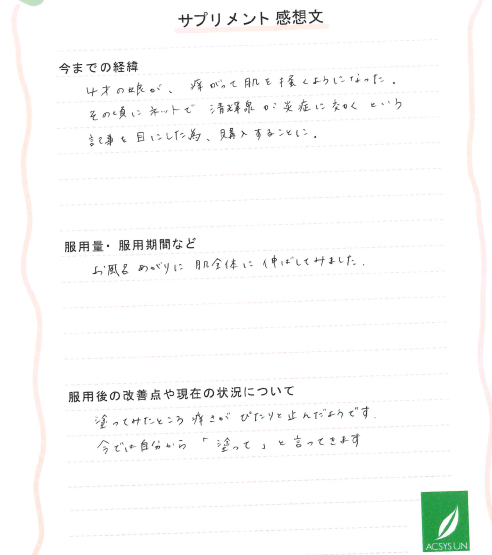 サプリメント 感想文
今までの経緯
4才の娘が、痒がって肌を掻くようになった。
その頃にネットで 清輝泉が炎症に効く という
記事を目にした為、購入することに。
服用量・服用期間など
お風呂あがりに 肌全体に伸ばしてみました。
服用後の改善点や現在の状況について
塗ってみたところ 痒さが ぴたりと止んだようです。
今では自分から 「塗って」と言ってきます
ACSYS UN